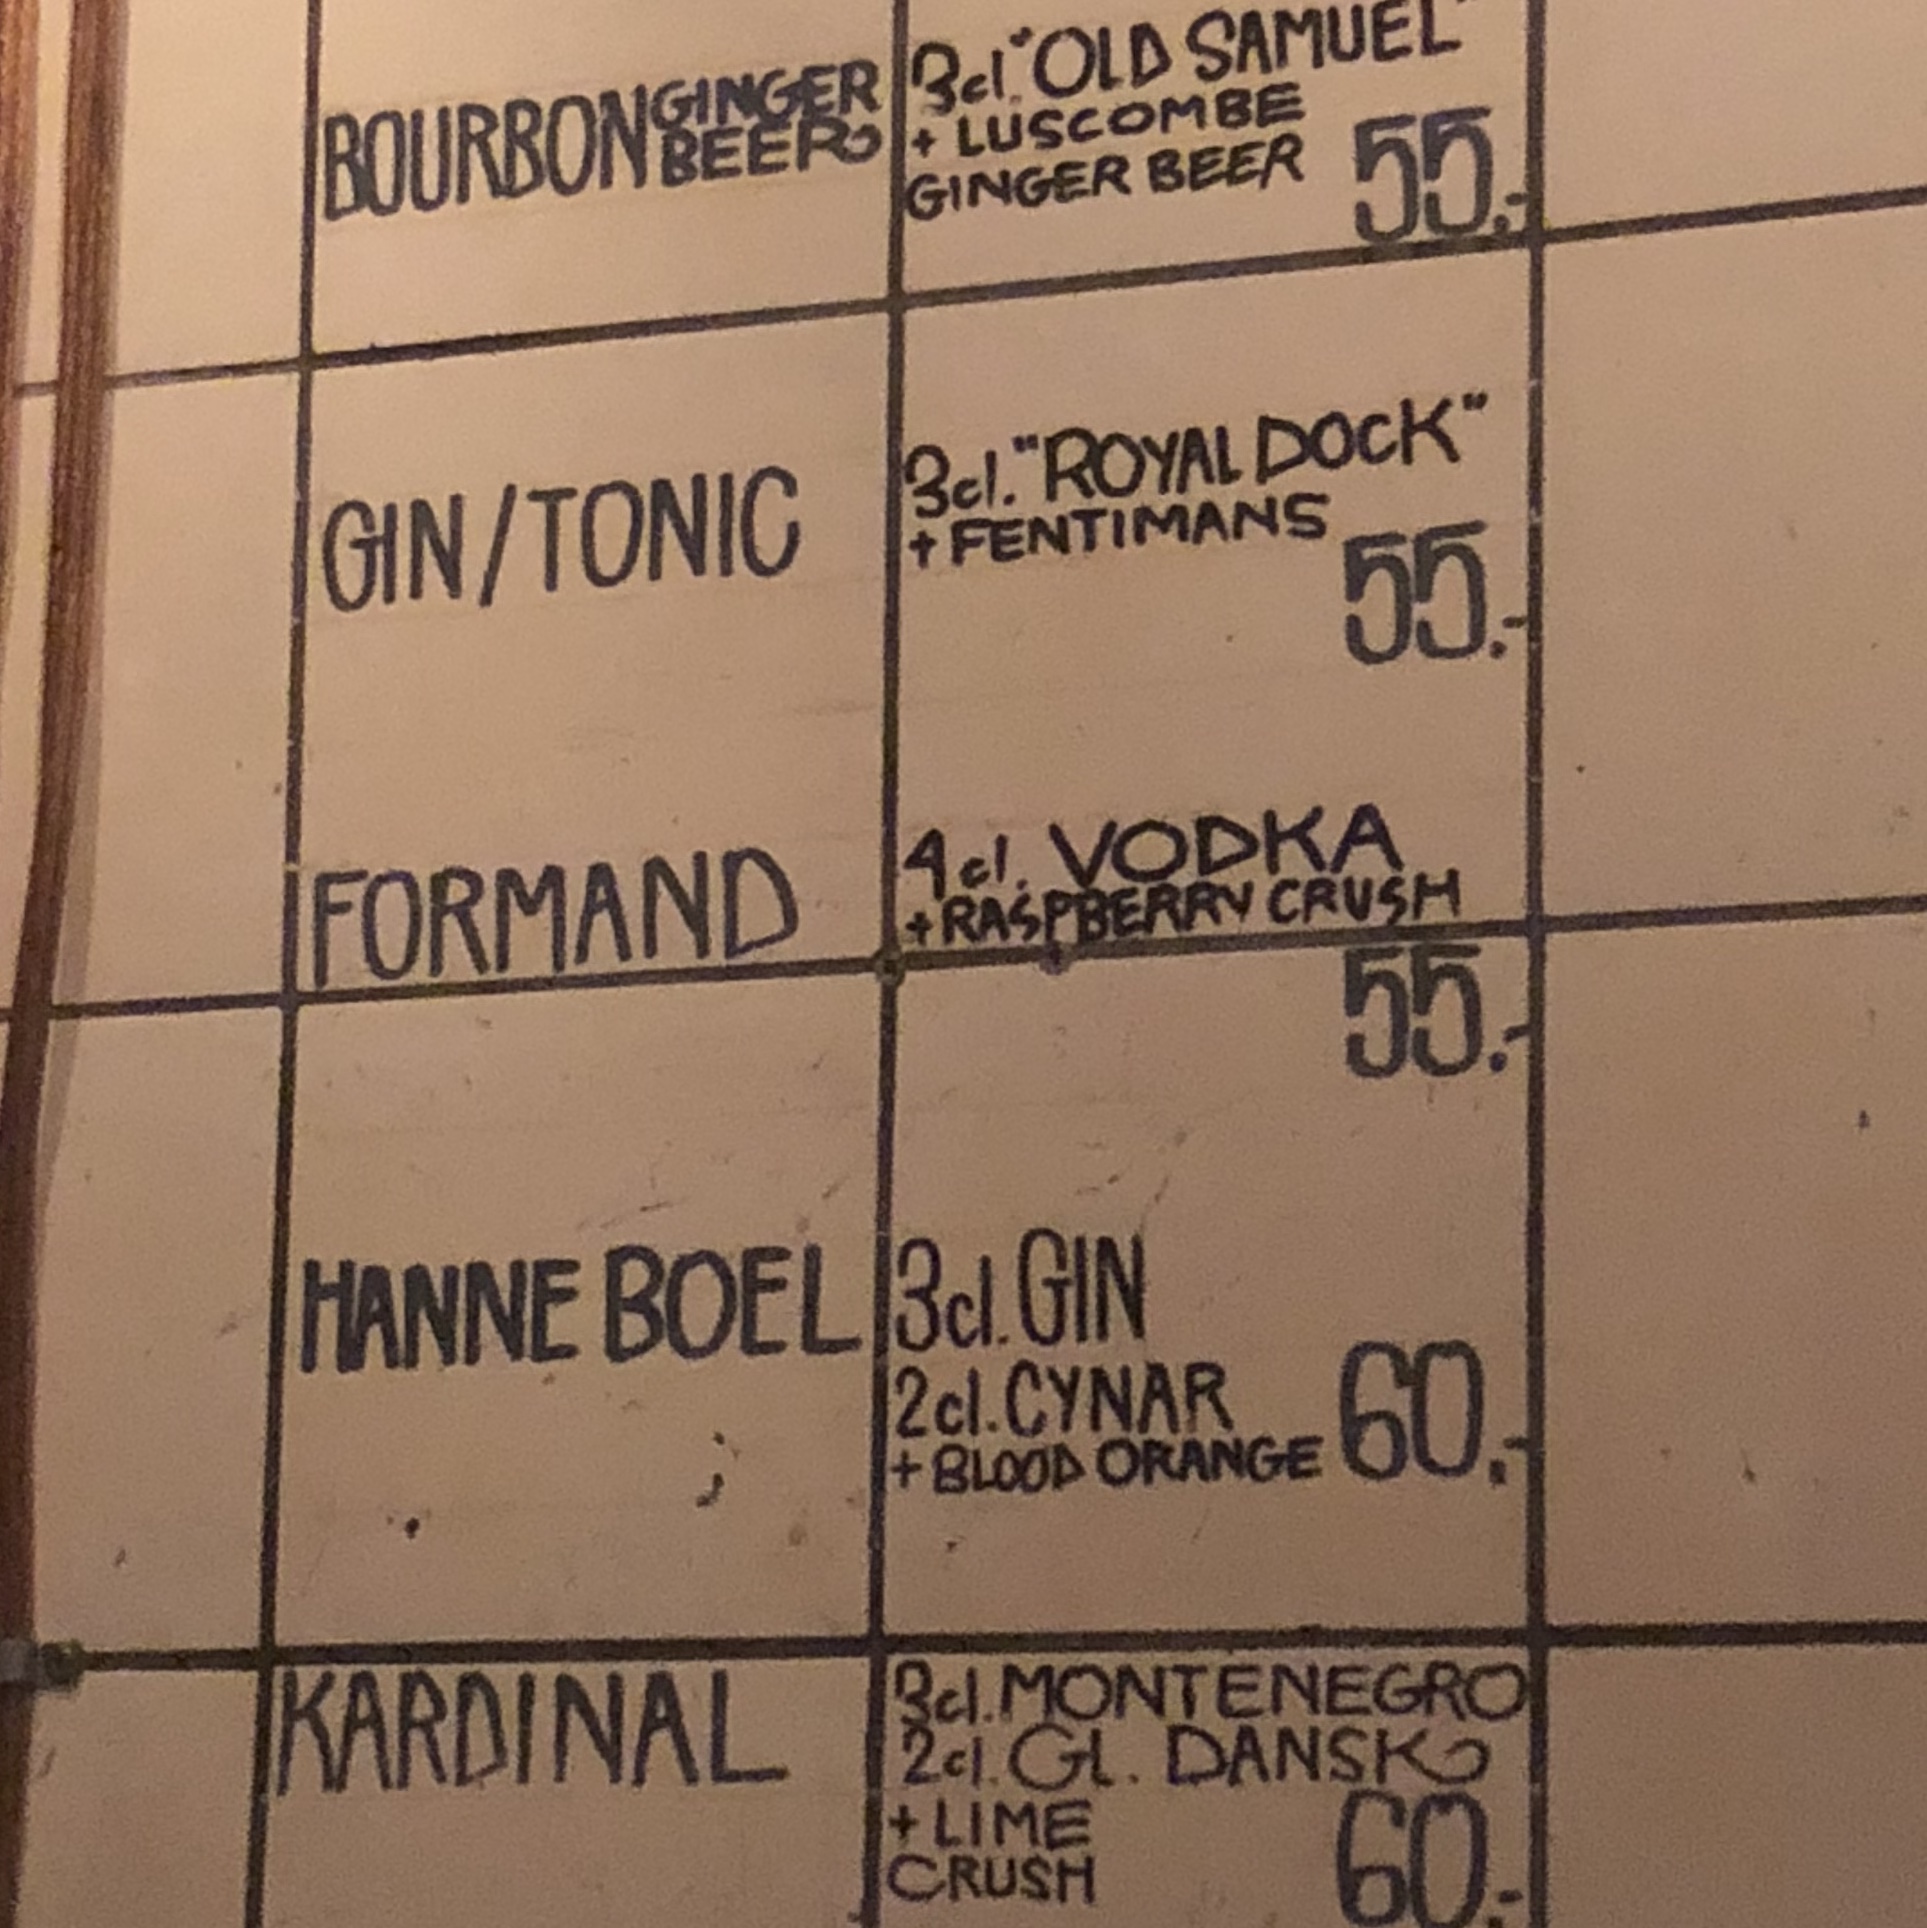 BOURBON GINGER BEER
3cl. "OLD SAMUEL"
+ LUSCOMBE
GINGER BEER 55.-
GIN/TONIC
3cl. "ROYAL DOCK"
+ FENTIMANS
55.-
FORMAND
4cl. VODKA
+ RASPBERRY CRUSH
55.-
HANNE BOEL
3cl. GIN
2cl. CYNAR
+ BLOOD ORANGE 60.-
KARDINAL
3cl. MONTENEGRO
2cl. Gl. DANSK
+ LIME
CRUSH 60.-